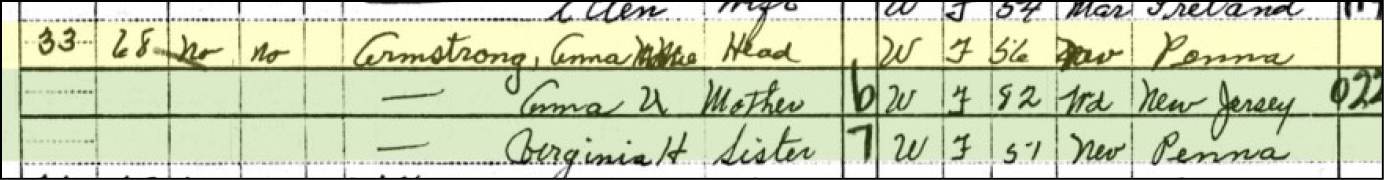 Ellen W F 54 Mar Ireland
33 68 No no Armstrong, Anna Head W F 56 Nev Penna
— Anna U Mother 6 W F 82 Wd New Jersey 022
— Virginia H Sister 7 W F 51 Nev Penna